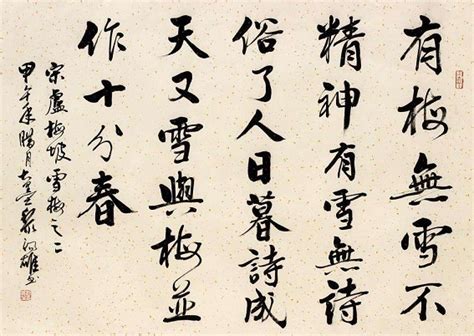 有梅無雪不
精神有雪無詩
俗了人日暮詩成
天又雪與梅並
作十分春
宋盧梅坡雪梅之二
甲午年臘月